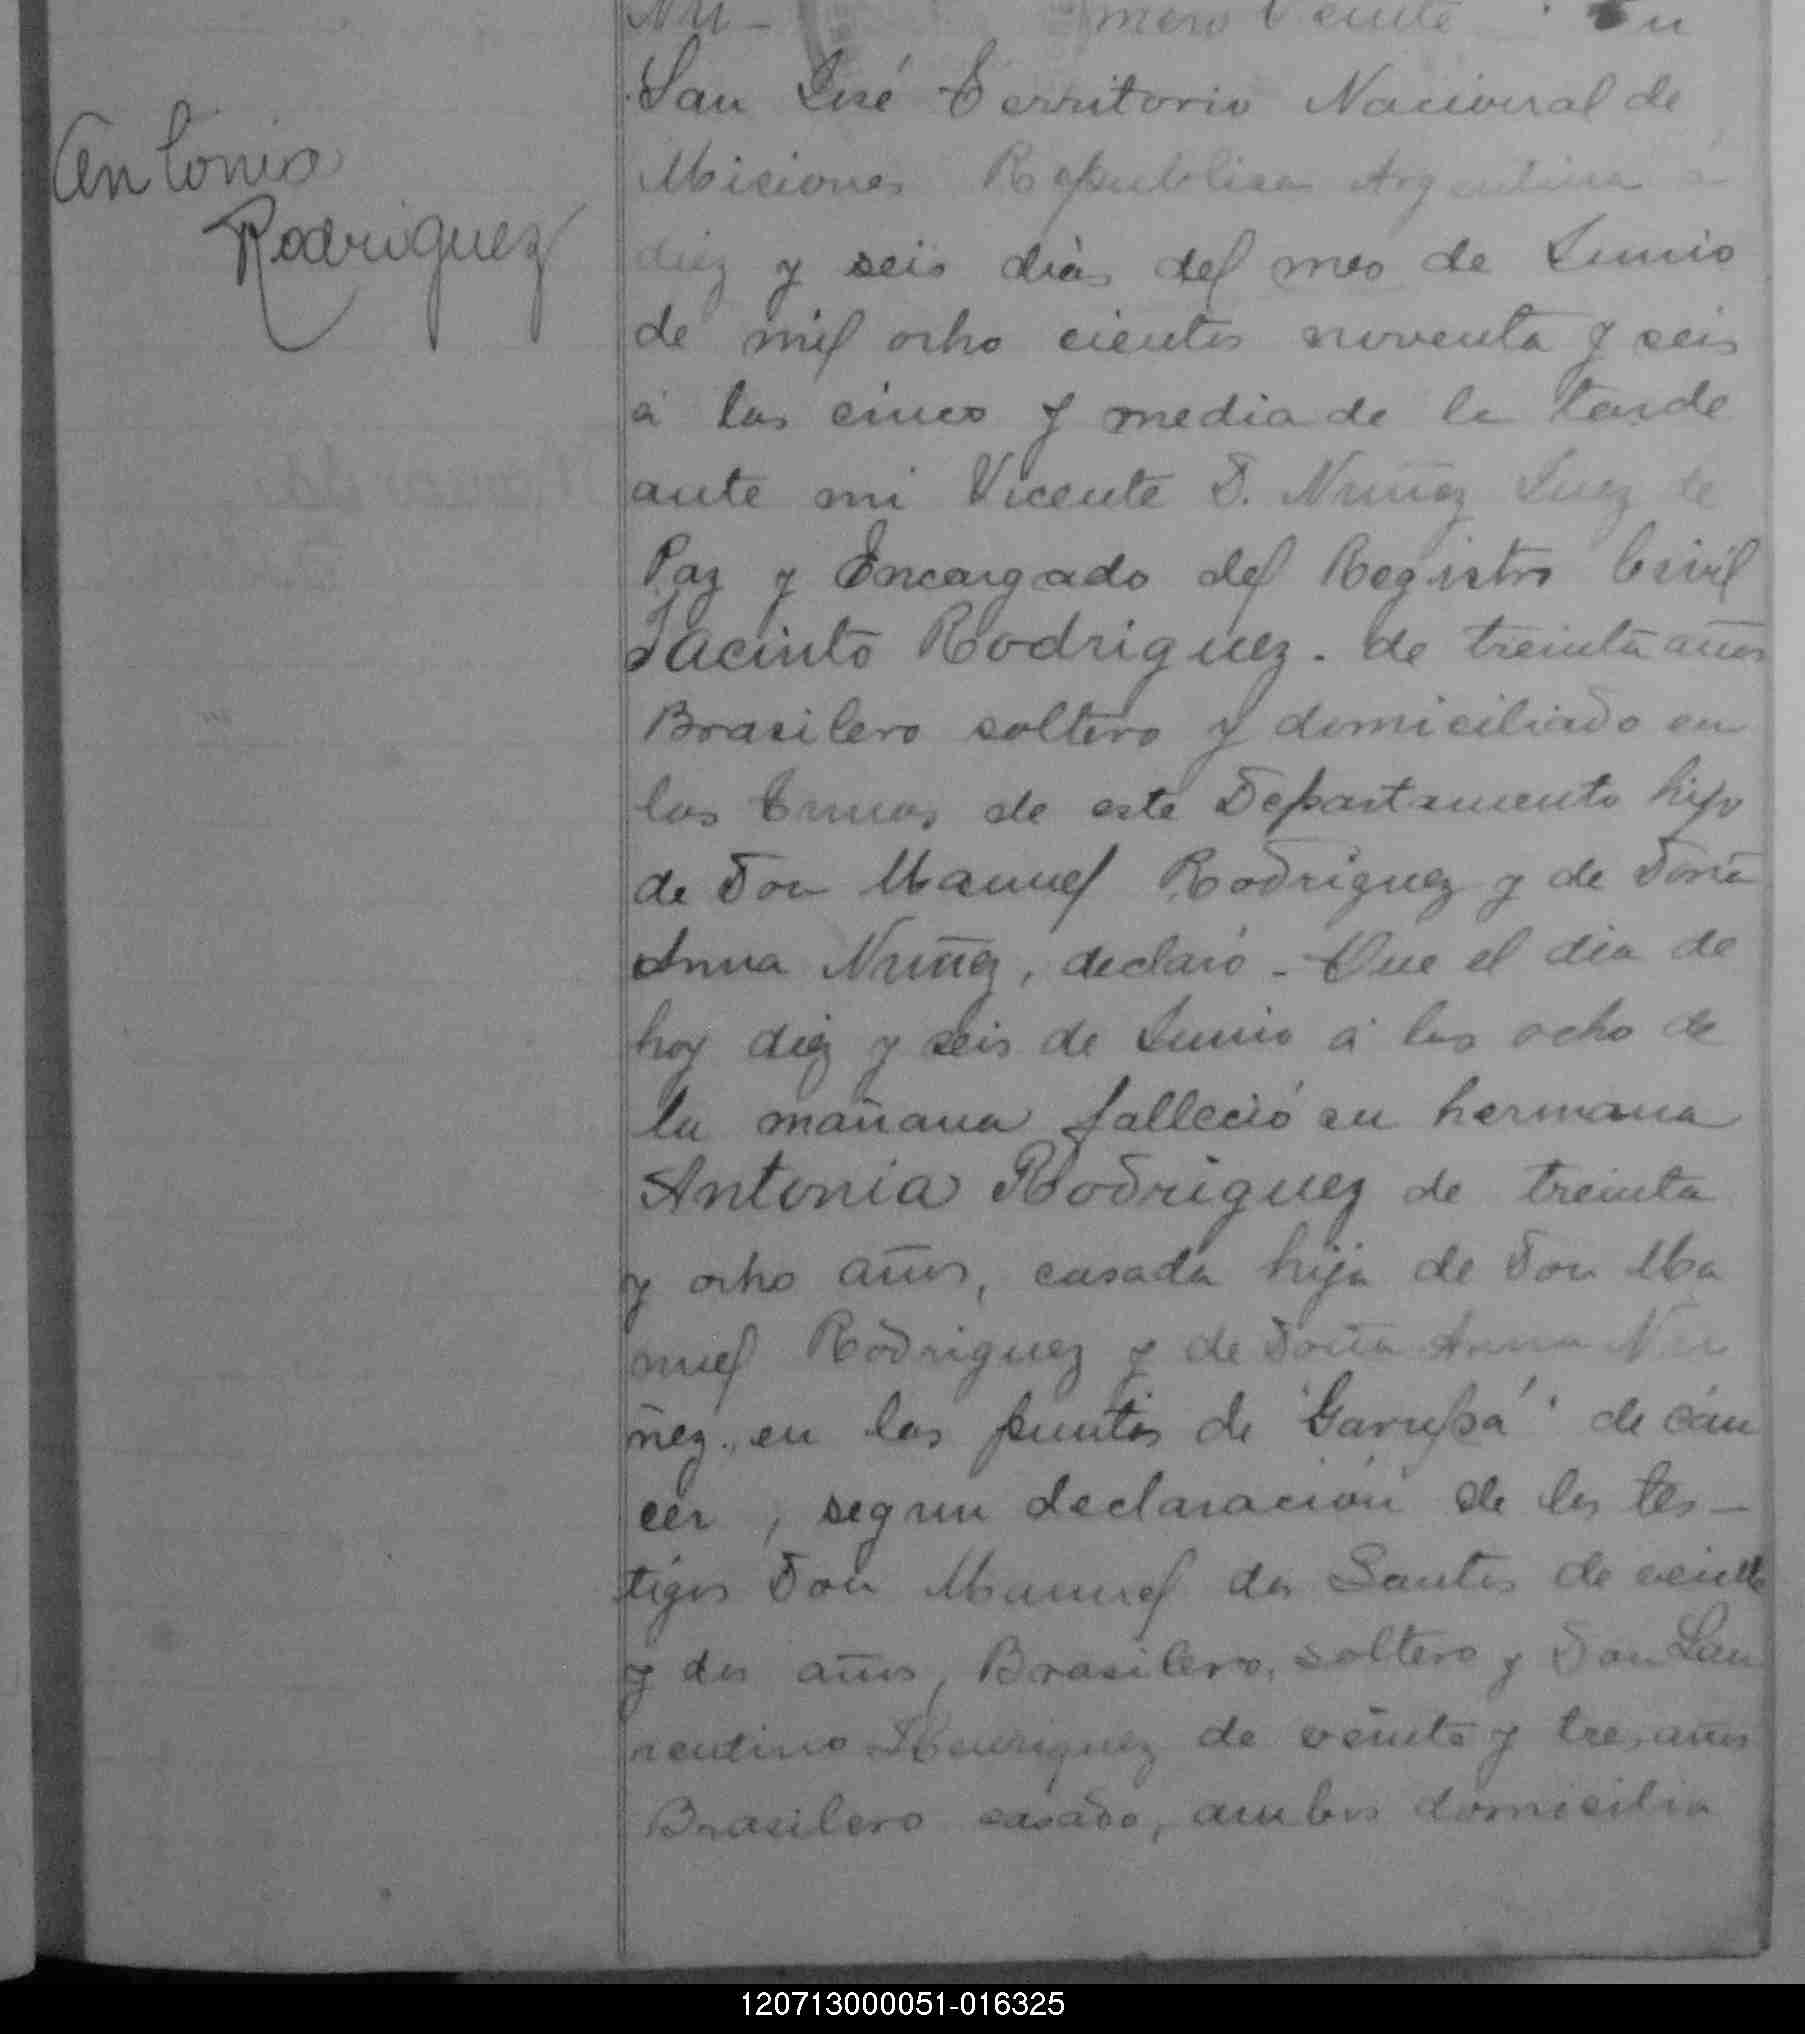 Nú- mero Veinte. En
San José Territorio Nacional de
Misiones Republica Argentina á
Antonia
Rodriguez
diez y seis dias del mes de Junio
de mil ocho cientos noventa y seis
á las cinco y media de la tarde
ante mi Vicente D. Nuñez Juez de
Paz y Encargado del Registro Civil
Jacinto Rodriguez. de treinta años
Brasilero soltero y domiciliado en
las de este Departamento hijo
de Don Manuel Rodriguez y de Doña
Anna Nuñez, declaró - Que el dia de
hoy diez y seis de Junio á las ocho de
la mañana falleció su hermana
Antonia Rodriguez de treinta
y ocho años, casada hija de Don Ma
nuel Rodriguez y de Doña Anna Nu
ñez, en las puntas de "Garupá" de cán
cer, segun declaración de los tes-
tigos Don Manuel dos Santos de veinte
y dos años, Brasilero, soltero y Don Lau
rentino de veinte y tres años
Brasilero casado, ambos domicilia
120713000051-016325